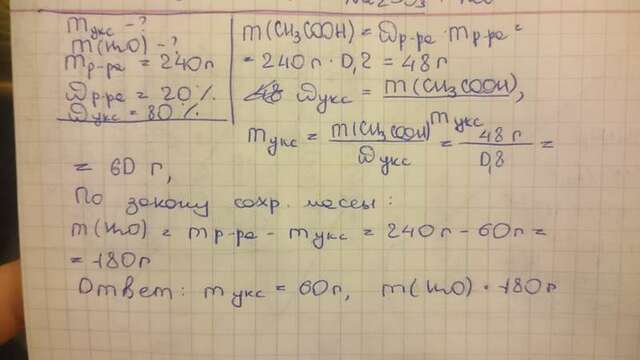 mукс - ?
m(H2O) - ?
mр-ра = 240 г
ωр-ра = 20%
ωукс = 80%
m(CH3COOH) = ωр-ра · mр-ра =
= 240 г · 0,2 = 48 г
ωукс = m(CH3COOH) / mукс,
mукс = m(CH3COOH) / ωукс = 48 г / 0,8 =
= 60 г,
По закону сохр. массы:
m(H2O) = mр-ра - mукс = 240 г - 60 г =
= 180 г
Ответ: mукс = 60 г, m(H2O) = 180 г